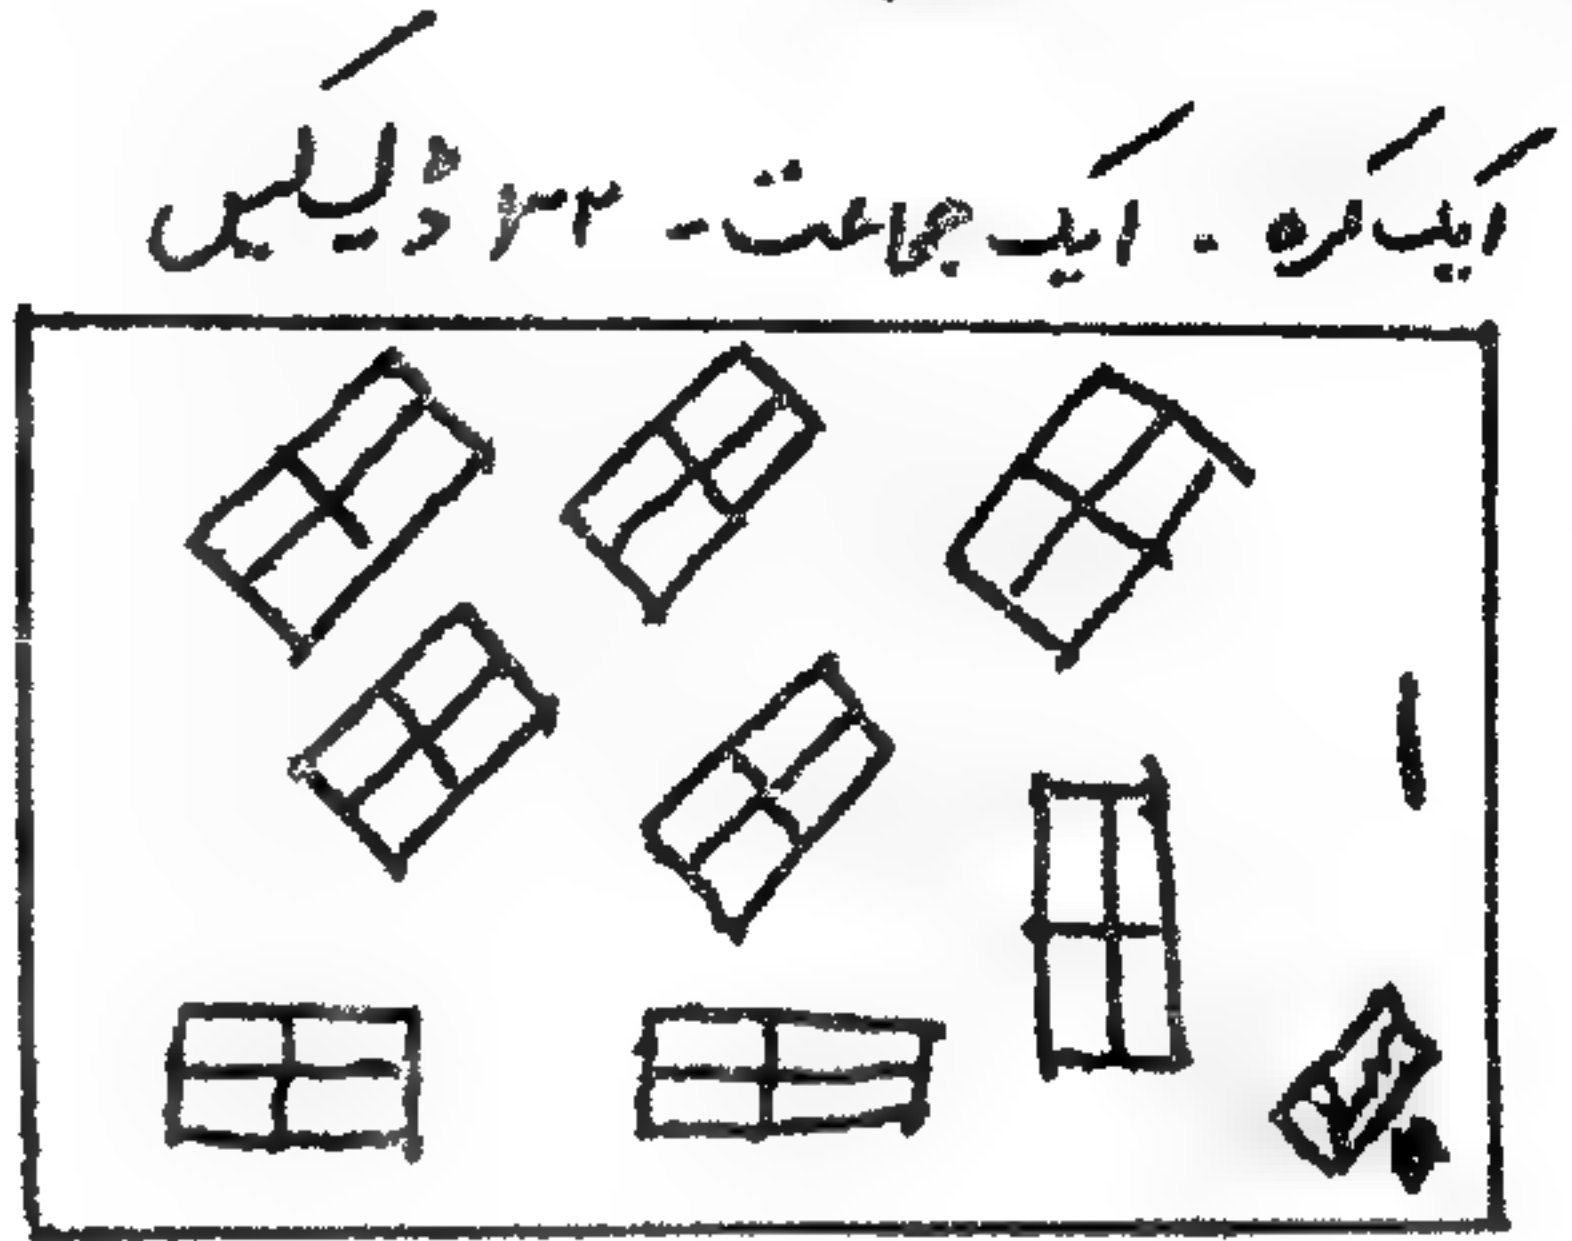 ایک کمرہ - ایک جماعت - ۳۲ ڈیسکیں